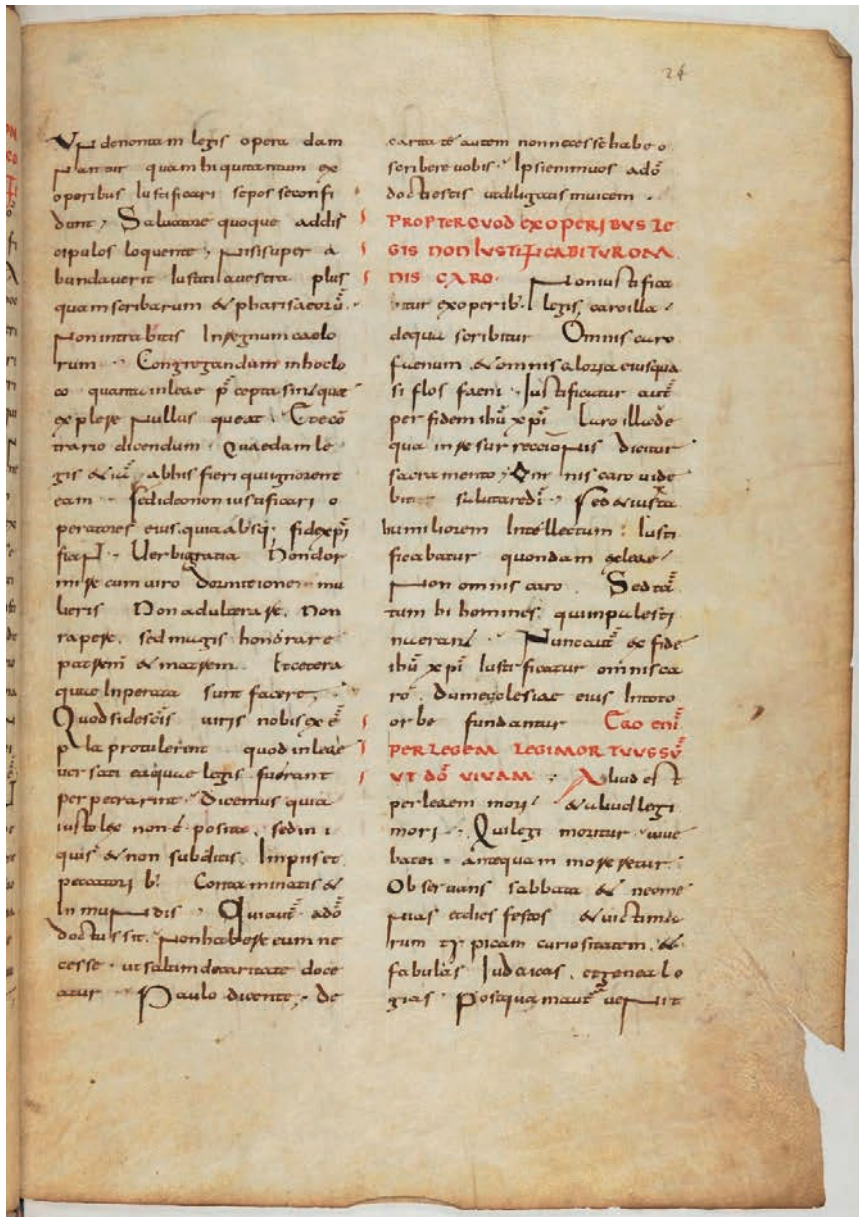 24
Unde non tam legis opera dam
nantur quam hi qui tantum ex
operibus iustificari se posse confi
dunt, Saluatore quoque addis
cipulos loquente, Nisi super a
bundauerit iustitia uestra plus
quam scribarum & pharisaeorū.
Non intrabitis In regnum caelo
rum. Congregandum in hoc lo
co quanta in lege p̄cepta sint que
explere nullus queat. Et e cō
trario dicendum. Quaedam le
gis & iā abhis fieri qui ignorent
eam. Sed ideo non iustificari o
peratores eius. quia absq; fide xp̄i
fiant. Uerbi gratia Non dor
mire cum uiro dormitione mu
lieris Non adulterare. Non
rapere. sed magis honorare
patrem & matrem. Et cetera
quae Inperata sunt facere,
Quod si de scīs uiris nobis exē
pla protulerint quod in lege
uersati ea quae legis fuerant
perpetrarint. Dicemus quia
iusto lex non ē posita. sed in i
quis & non subditis. Impiis et
peccatorib; Contaminatis &
In mundis. Qui autē adō
doctus sit. Non habere eum ne
cesse. ut saltim de caritate doce
atur. Paulo dicente, De
caritate autem non necesse habeo
scribere uobis. Ipsi enim uos adō
docti estis ut diligatis inuicem.
PROPTER QUOD EX OPERIBUS LE
GIS NON IUSTIFICABITUR OM
NIS CARO. Non iustifica
bitur ex operib; legis, caro illa
de qua scribitur Omnis caro
faenum & omnis gloria eius qua
si flos faeni. Iustificatur autē
per fidem ihū xp̄i Caro illa de
qua in resurrectionis dicitur
sacramento, Omnis caro uide
bit salutare dī. Sed & iuxta
humiliorem Intellectum: Iusti
ficabatur quondam ex lege
Non omnis caro. Sed tā
tum hi homines. qui in palesti
na erant. Nunc autē ex fide
ihū xp̄i Iustificatur omnis ca
ro. Dum ecclesiae eius In toto
orbe fundantur Ego enī
PER LEGEM LEGI MORTUUS SŪ
UT DŌ VIVAM. Aliud est
per legem mori & aliud legi
mori. Qui legi moritur uiue
bat ei. antequam moreretur.
Obseruans sabbata & neome
nias et dies festos & uictima
rum typicam curiositatem. &
fabulas Iudaicas. et genealo
gias. Postquam autē uenit